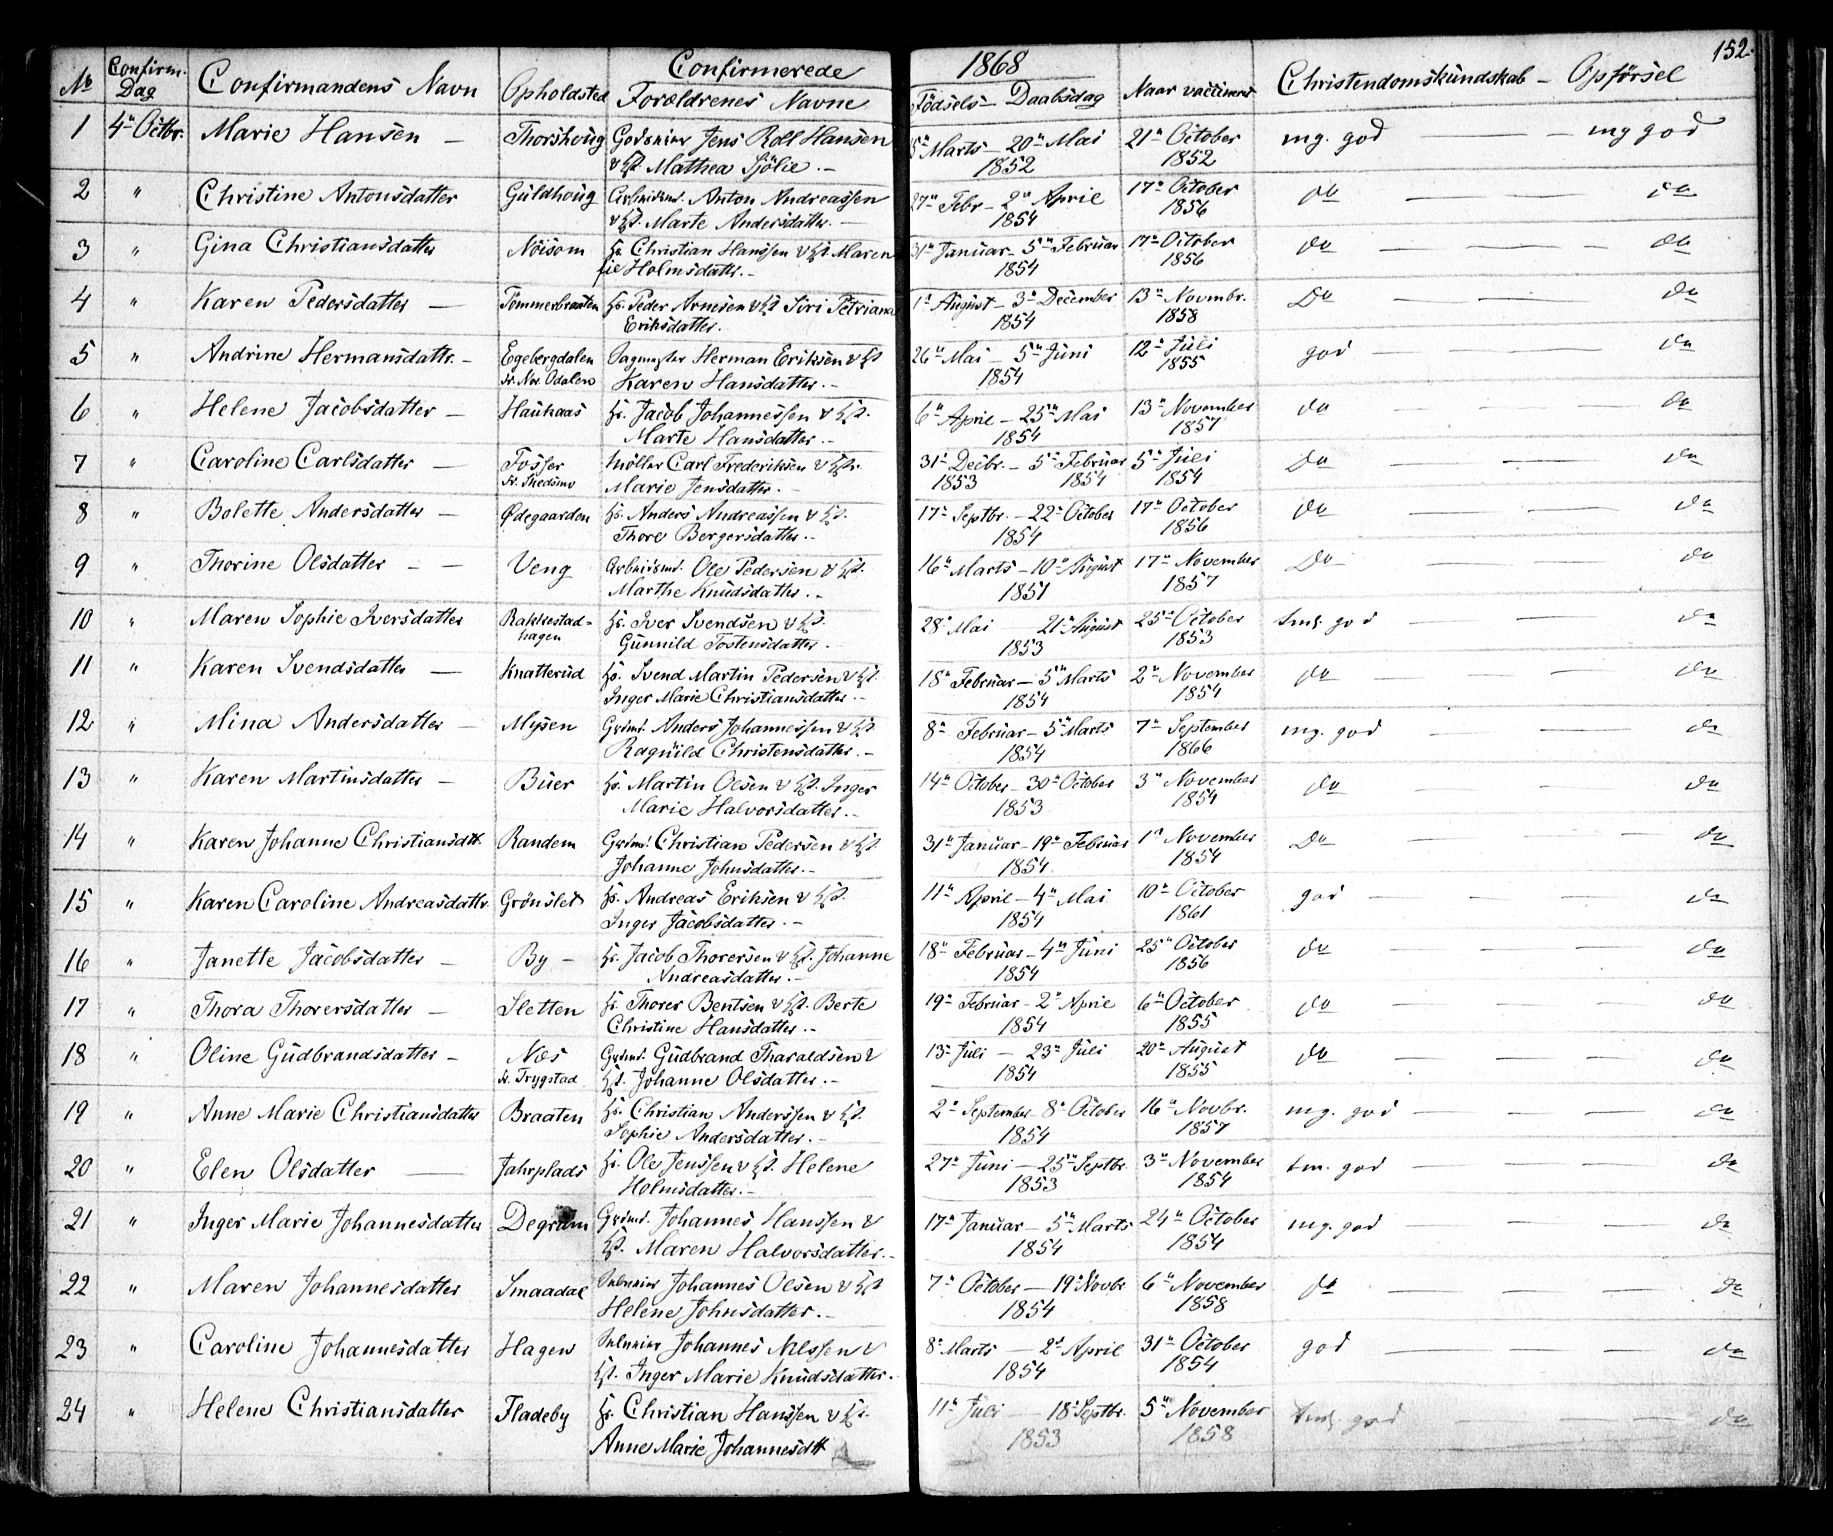 Confirmerede 1868 152.
No Confirm. Dag Confirmandens Navn Opholdsted Forældrenes Navne Fødsels- Daabsdag Naar vaccineret Christendomskundskab - Opførsel
1 4de Octbr. Marie Hansen — Thorshoug Jens Roll Hansen 5te Marts — 20de Mai 21de October mg. god — — mg god
& Mathea Sjølie. — 1852 1852
2 " Christine Antonsdatter Guldhoug Anton Andreassen 27de Febr — 2den April 17de October do — — do
& Marte Andersdatter. 1854 1856
3 " Gina Christiansdatter Nøisom Christian Hanssen & Maren 31te Januar — 5te Februar 17de October do — — do
Holmsdatter. — 1854 1856
4 " Karen Pedersdatter — Tømmerbraaten Hs. Peder Arnesen & Siri Petriana 1ste August — 3die December 13de Novembr. Do — — do
Eriksdatter. 1854 1858
5 " Andrine Hermansdattr. — Egebergdalen Herman Eriksen & 26de Mai — 5te Juni 12te Juli god — — do
fr. Nor. Odalen Karen Hansdatter. — 1854 1855
6 " Helene Jacobsdatter — Hauhaas Hs. Jacob Johannessen & 6te April — 25de Mai 13de November do — — do
Marte Hansdatter. — 1854 1857
7 " Caroline Carlsdatter — Fosser Møller Carl Frederiksen & 31te Decbr. — 5te Februar 5te Juli Do — — do
Marie Jensdatter. — 1853 1854 1854
8 " Bolette Andersdatter — Ødegaarden Hs. Anders Andreassen & 17de Septbr. — 22de October 17de October do — — do
Thore Bergersdatter. — 1854 1856
9 " Thorine Olsdatter — — Veng Ole Pedersen & 16de Marts — 10de August 17de November Do — — do
Marthe Knudsdatter. — 1851 1857
10 " Maren Sophie Iversdatter Rakkestad- Hs. Iver Svendsen & 28de Mai — 21de August 25de October tml. god — — do
hagen Gunnild Tostensdatter. — 1853 1853
11 " Karen Svendsdatter — Knatterud Hs. Svend Martin Pedersen & 18de Februar — 5te Marts 2den November do — — do
Inger Marie Christiansdatter. — 1854 1854
12 " Mina Andersdatter — Mysen Grdmd. Anders Johannessen & 8de Februar — 5te Marts 7de September mg. god — — do
Ragnild Christensdatter. — 1854 1866
13 " Karen Martinsdatter — Buer Hs. Martin Olsen & Inger 14de October — 30te October 3die November do — — do
Marie Halvorsdatter. — 1853 1854
14 " Karen Johanne Christiansdtt. Randem Grdmd. Christian Pedersen & 31te Januar — 19de Februar 1ste November Do — — do
Johanne Johnsdatter. — 1854 1854
15 " Karen Caroline Andreasdattr. Grønslet Hs. Andreas Eriksen & 11te April — 4de Mai 10de October god — — do
Inger Jacobsdatter. — 1854 1861
16 " Janette Jacobsdatter — By — Hs. Jacob Thorersen & Johanne 18de Februar — 4de Juni 25de October do — — do
Andreasdatter. — 1854 1856
17 " Thora Thorersdatter — Sletten Hs. Thorer Bentsen & Berte 19de Februar — 2den April 6te October do — — do
Christine Hansdatter. — 1854 1855
18 " Oline Gudbrandsdatter — Næs Grdmd. Gudbrand Tharaldsen & 13de Juli — 23de Juli 20de August do — — do
fr. Trygstad Johanne Olsdatter. — 1854 1855
19 " Anne Marie Christiansdatter Braaten Hs. Christian Anderssen & 2den September 8de October 16de Novbr. mg. god — — do
Sophie Andersdatter. — 1854 1857
20 " Elen Olsdatter — Jahrplads Hs. Ole Jenssen & Helene 27de Juni — 25de Septbr. 3die November tm. god — — do
Holmsdatter. — 1853 1854
21 " Inger Marie Johannesdatter Degrum Grdmd. Johannes Hanssen & 17de Januar — 5te Marts 24de October mg. god — — do
Maren Halvorsdatter. — 1854 1854
22 " Maren Johannesdatter Smaadal Johannes Olsen & 7de October — 19de Novbr 6te November do — — do
Helene Johnsdatter. — 1854 1858
23 " Caroline Johannesdatter Hagen Johannes Nilssen & 8de Marts — 2den April 31te October god — — do
Inger Marie Knudsdatter. 1854 1854
24 " Helene Christiansdatter Fladeby Hs. Christian Hanssen & 11te Juli — 18de Septbr. 5te November tml. god — — do
Anne Marie Johannesdtt 1853 1858